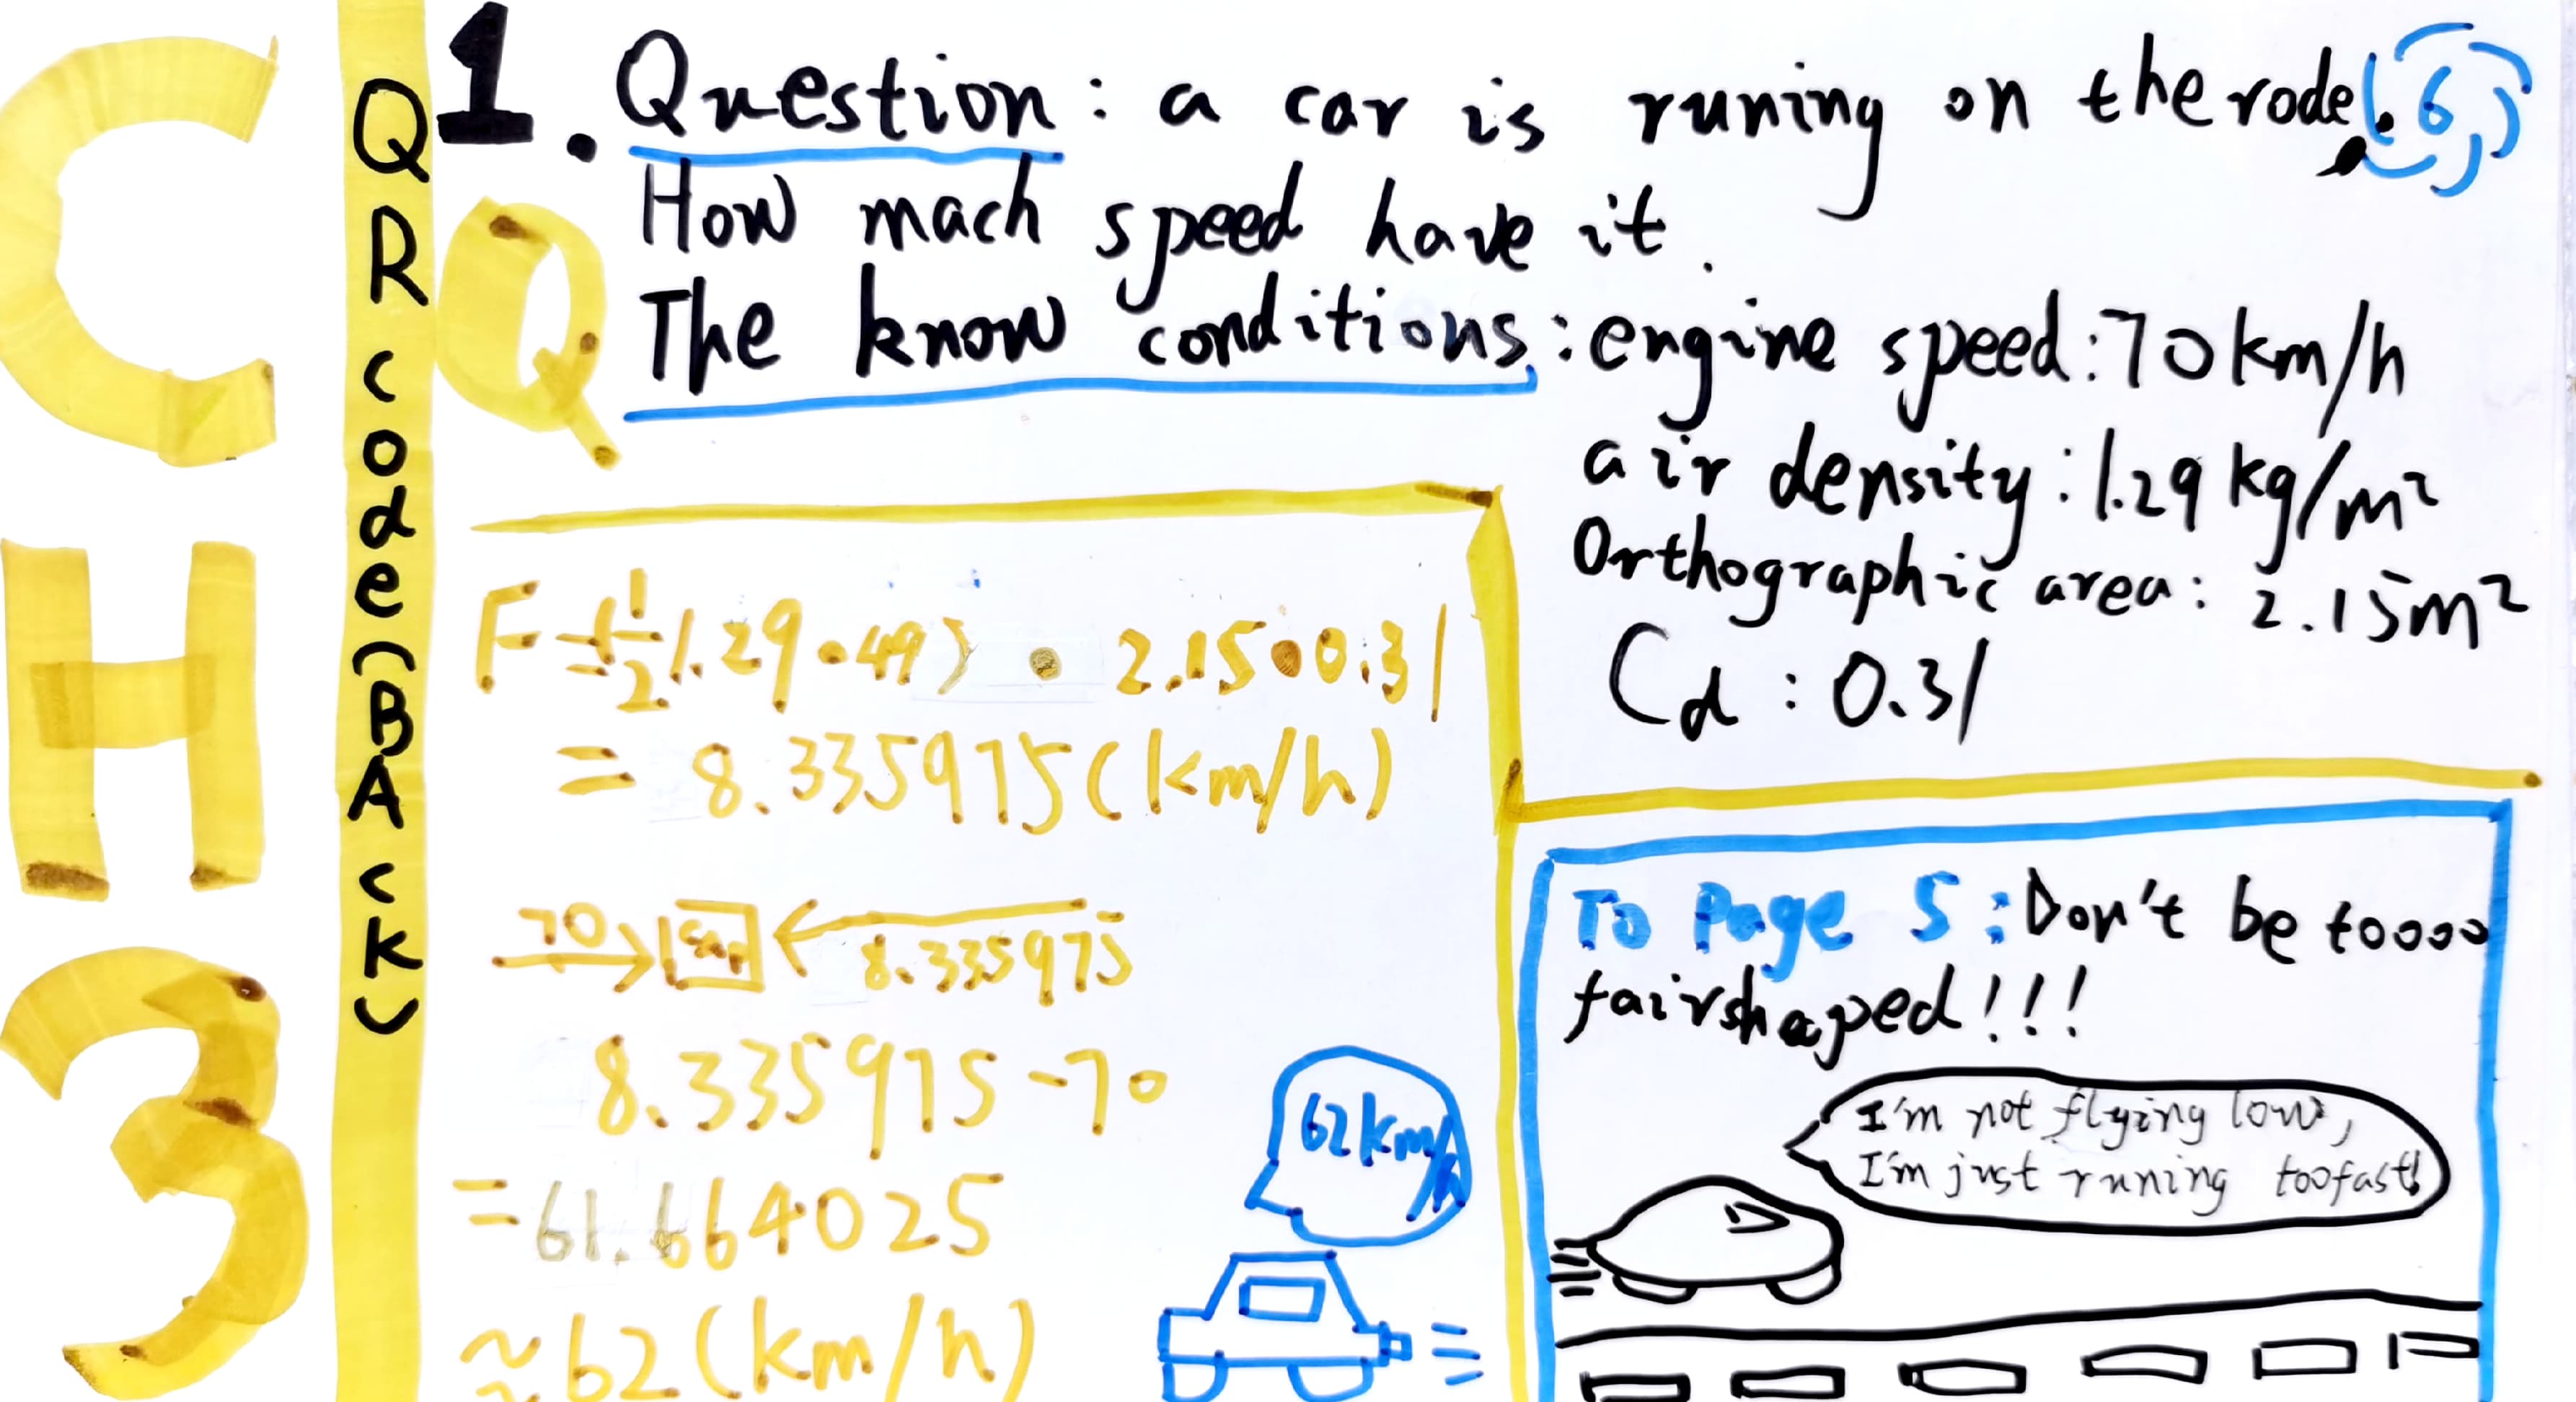 CH3
QR code(BAcK)
1. Question: a car is runing on the rode.
6
How mach speed have it.
Q
The know conditions: engine speed: 70km/h
air density: 1.29 kg/m²
Orthographic area: 2.15m²
Cd: 0.31
F=(½1.29•49)•2.15•0.31
= 8.335975(km/h)
70
car
8.335975
8.335975-70
=61.664025
≈62(km/h)
62km/h
To Page 5: Don't be toooo
fairshaped!!!
I'm not flying low,
I'm just runing toofast!